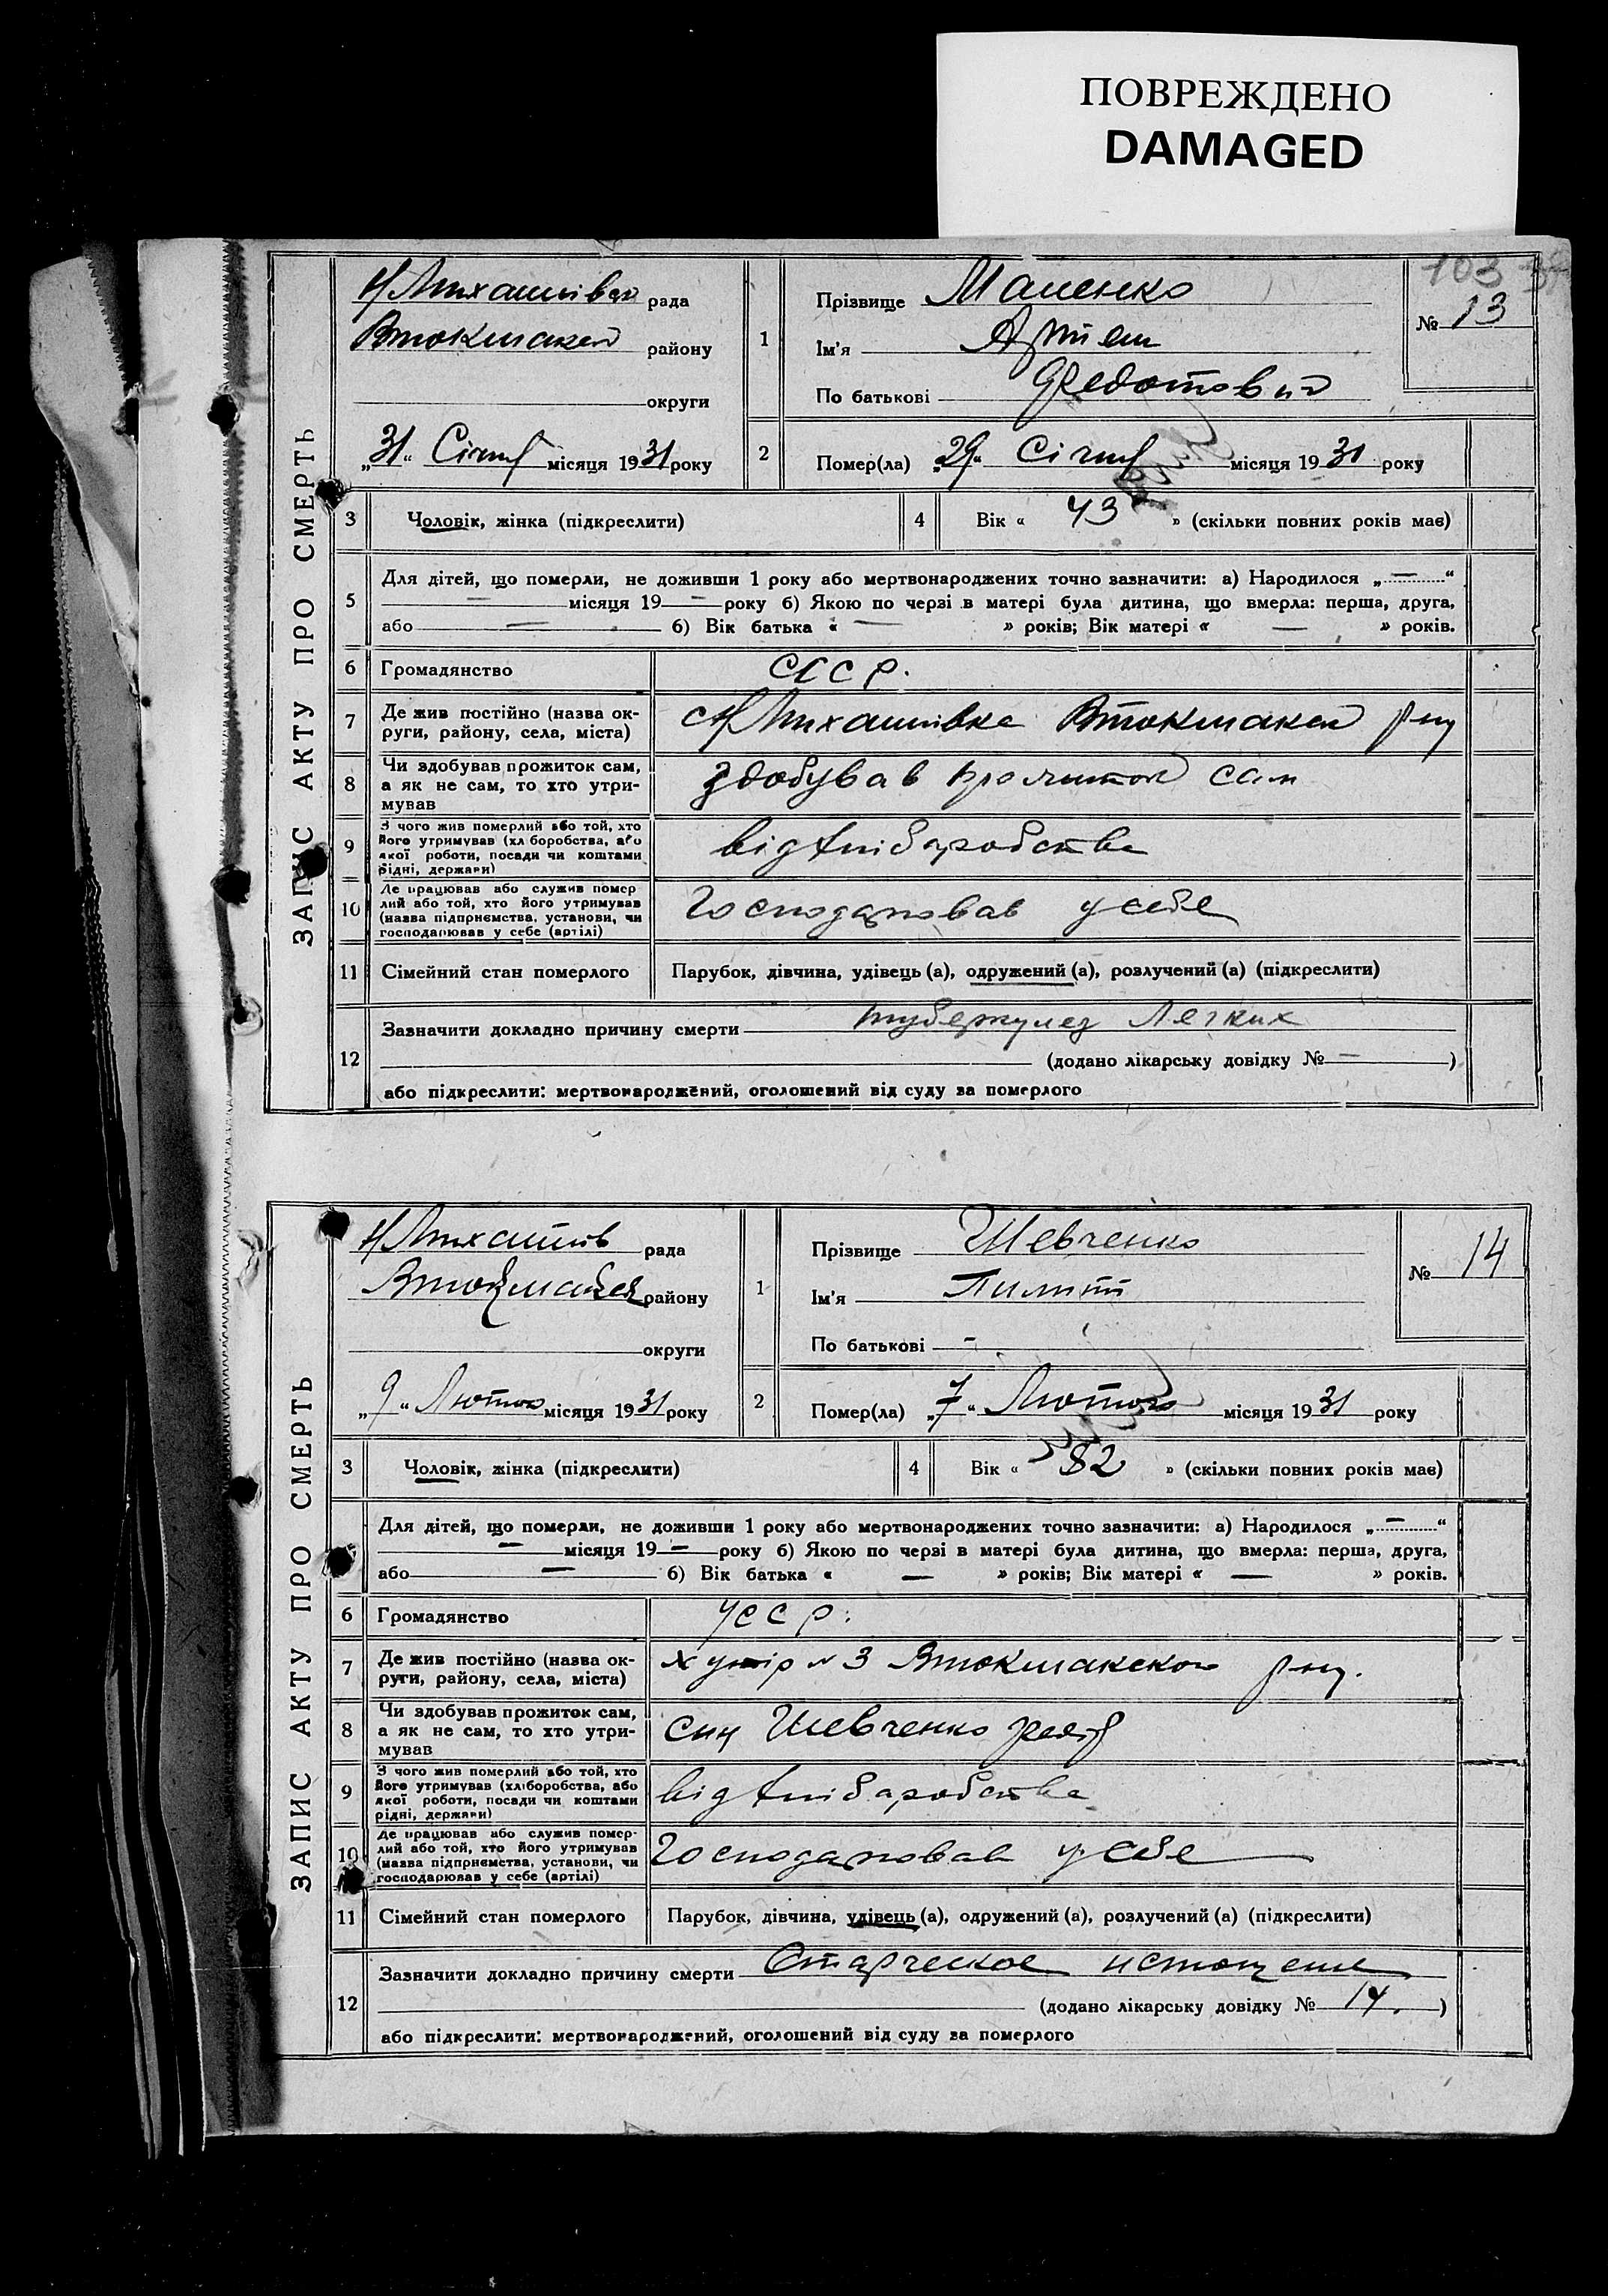 ПОВРЕЖДЕНО
DAMAGED
103
ЗАПИС АКТУ ПРО СМЕРТЬ
рада
району
округи
„31“ Січня місяця 1931 року
1
Прізвище
Ім'я Артем
По батькові Федотович
№ 13
2
Помер(ла) „29“ Січня місяця 1931 року
3 Чоловік, жінка (підкреслити)
4 Вік « 43 » (скільки повних років має)
5
Для дітей, що померли, не доживши 1 року або мертвонароджених точно зазначити: а) Народилося „—“
— місяця 19 — року б) Якою по черзі в матері була дитина, що вмерла: перша, друга,
або — б) Вік батька « — » років; Вік матері « — » років.
6 Громадянство СССР.
7 Де жив постійно (назва ок-
руги, району, села, міста)
8 Чи здобував прожиток сам,
а як не сам, то хто утри-
мував
здобував прожиток сам
9 З чого жив померлий або той, хто
його утримував (хліборобства, або
якої роботи, посади чи коштами
рідні, держави)
від хліборобства
10 Де працював або служив помер
лий або той, хто його утримував
(назва підприємства, установи, чи
господарював у себе (артілі)
Господарював у себе
11 Сімейний стан померлого Парубок, дівчина, удівець (а), одружений (а), розлучений (а) (підкреслити)
12
Зазначити докладно причину смерти туберкулез Легких
(додано лікарську довідку № — )
або підкреслити: мертвонароджений, оголошений від суду за померлого
ЗАПИС АКТУ ПРО СМЕРТЬ
рада
району
округи
„9“ Лютого місяця 1931 року
1
Прізвище Шевченко
Ім'я Пилип
По батькові -
№ 14
2
Помер(ла) „7“ Лютого місяця 1931 року
3 Чоловік, жінка (підкреслити)
4 Вік « 82 » (скільки повних років має)
Для дітей, що померли, не доживши 1 року або мертвонароджених точно зазначити: а) Народилося „—“
— місяця 19 — року б) Якою по черзі в матері була дитина, що вмерла: перша, друга,
або — б) Вік батька « — » років; Вік матері « — » років.
6 Громадянство УССР.
7 Де жив постійно (назва ок-
руги, району, села, міста)
хутір № 3 Втокмакского р-ну.
8 Чи здобував прожиток сам,
а як не сам, то хто утри-
мував
син Шевченко
9 З чого жив померлий або той, хто
його утримував (хліборобства, або
якої роботи, посади чи коштами
рідні, держави)
від хліборобства
10 Де працював або служив помер-
лий або той, хто його утримував
(назва підприємства, установи, чи
господарював у себе (артілі)
Господарював у себе
11 Сімейний стан померлого Парубок, дівчина, удівець (а), одружений (а), розлучений (а) (підкреслити)
12
Зазначити докладно причину смерти Старческое истощение
(додано лікарську довідку № 14. )
або підкреслити: мертвонароджений, оголошений від суду за померлого